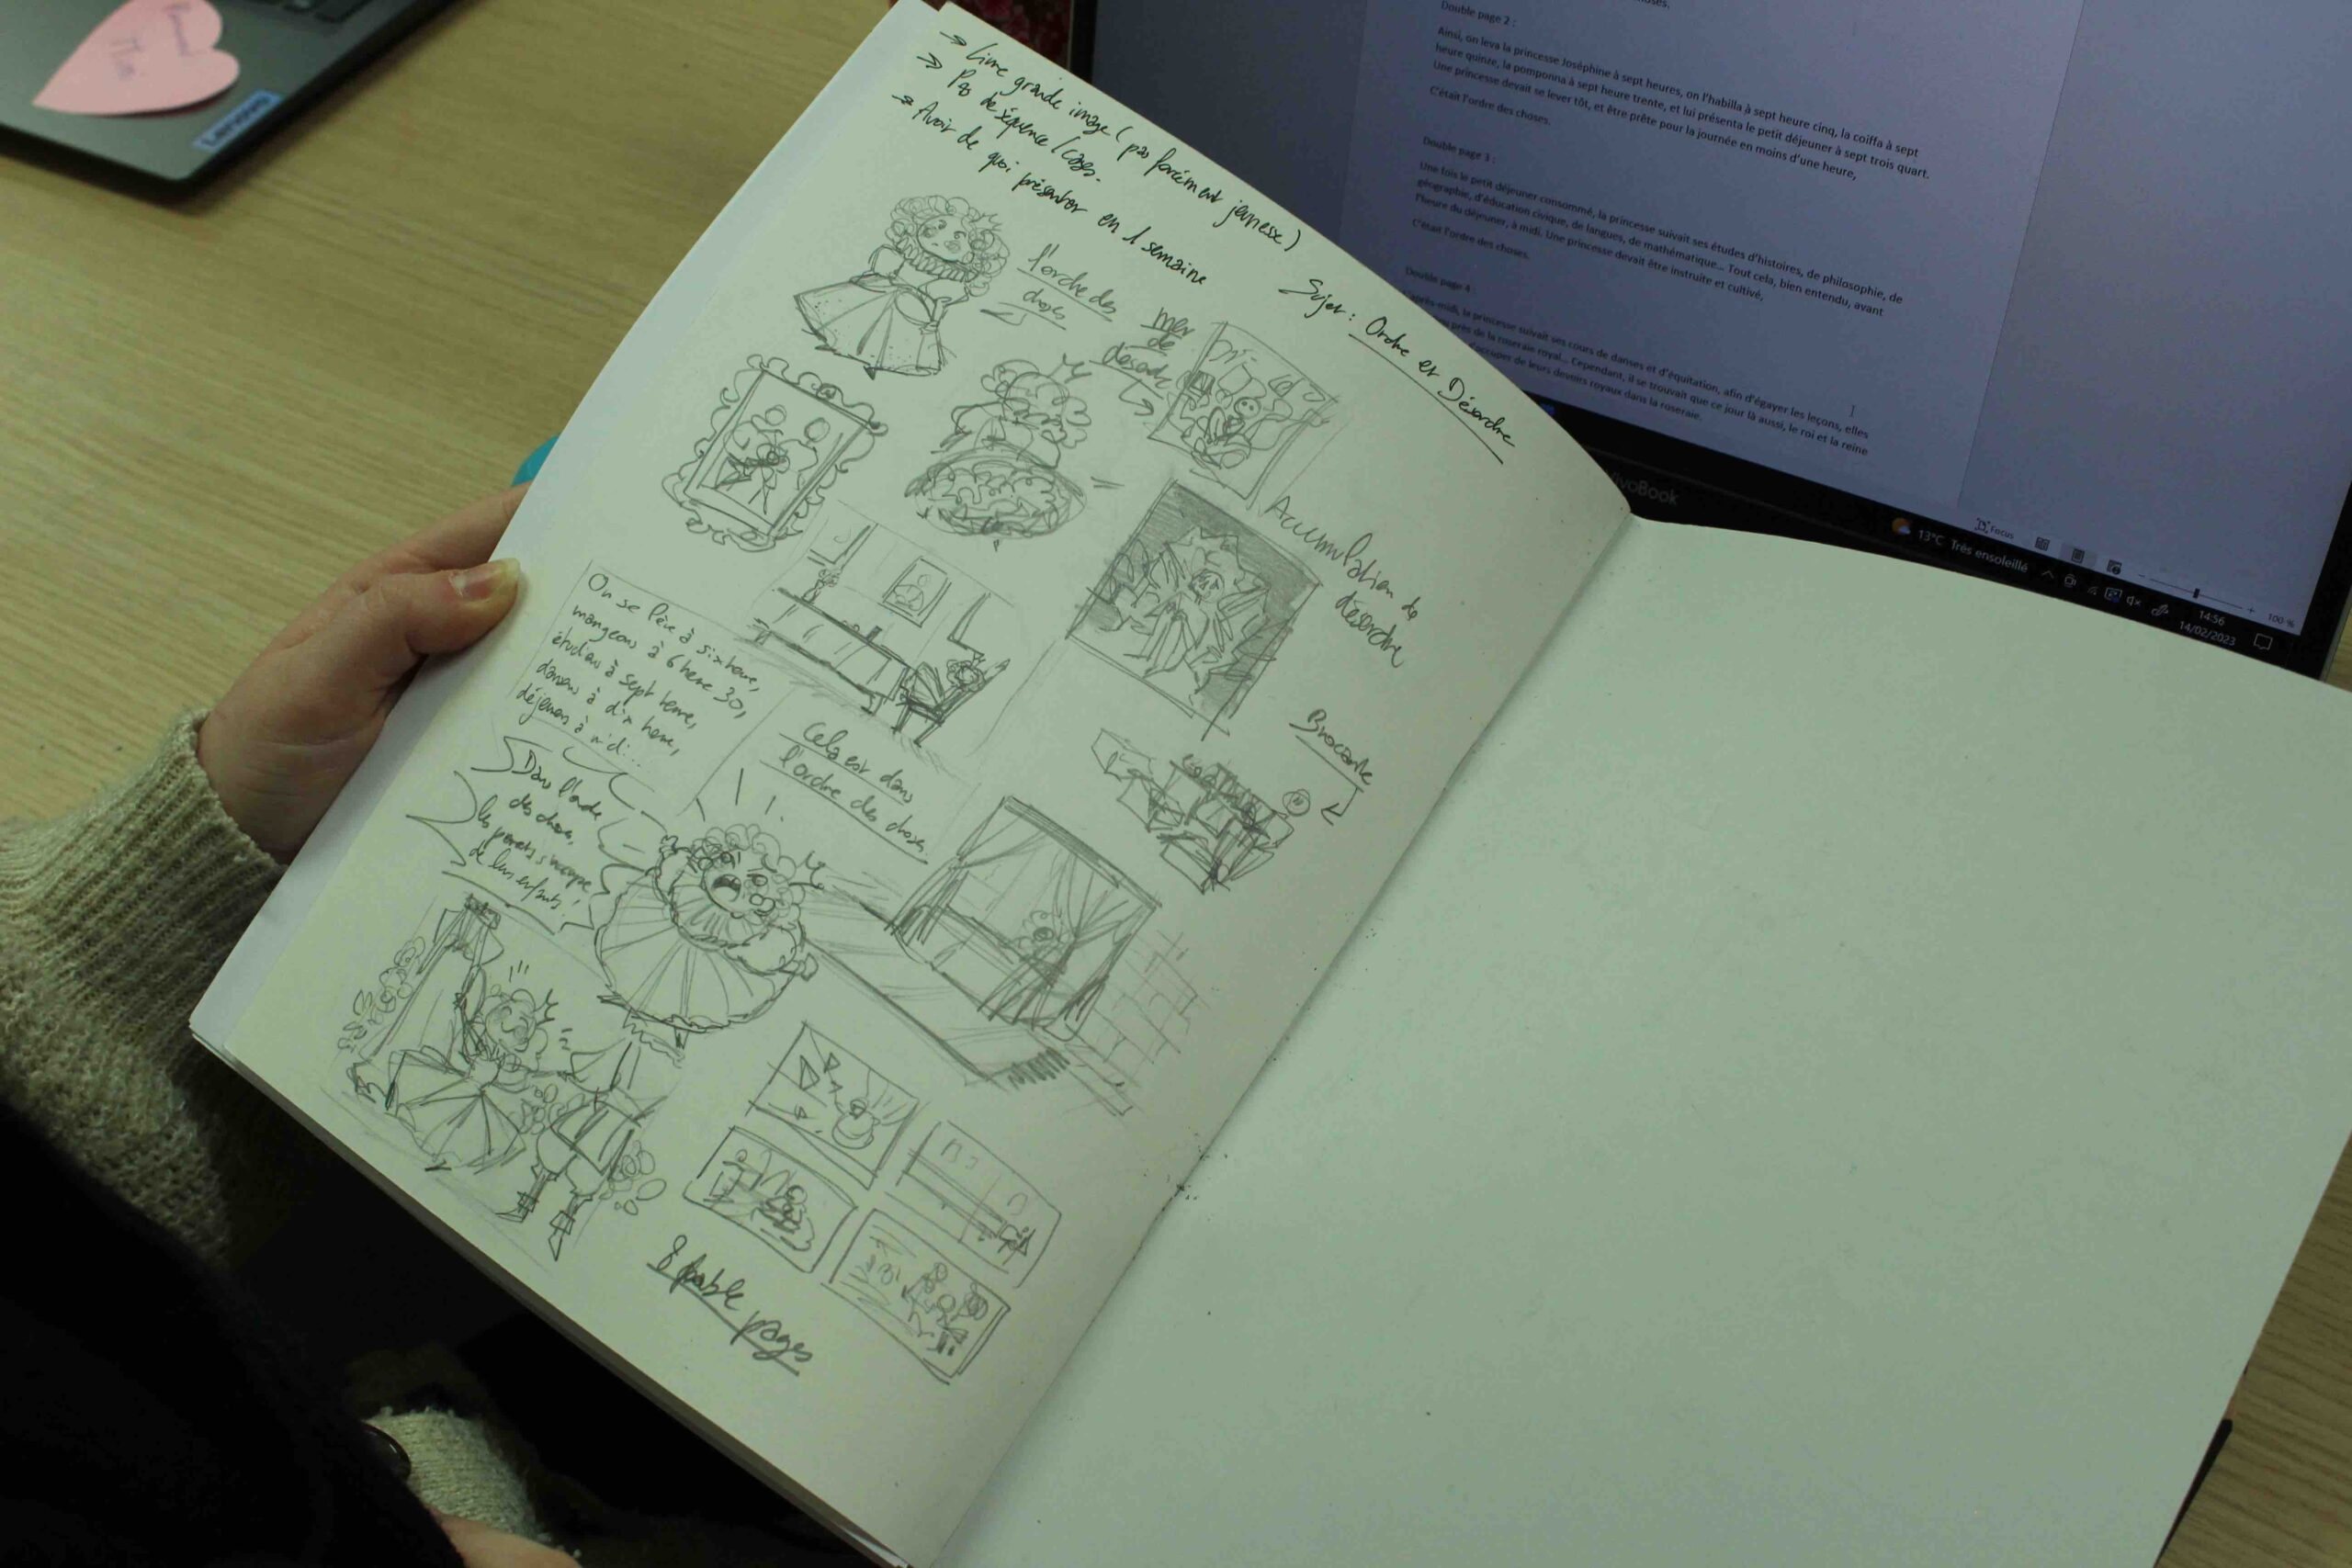 → Livre grande image (pas forcément jeunesse)
→ Pas de séquence/cases.
→ Avoir de quoi présenter en 1 semaine
Sujet : Ordre et Désordre
l'ordre des
choses
mer
de
désordre
Accumulation de
désordre
Brocante
On se lève à six heure,
mangeons à 6 heure 30,
étudions à sept heure,
dansons à dix heure,
déjeunons à midi...
Cela est dans
l'ordre des choses
Dans l'ordre
des choses,
les parents s'occupe
de leurs enfants!
8 double pages
Lenovo
choses.
Double page 2 :
Ainsi, on leva la princesse Joséphine à sept heures, on l'habilla à sept heure cinq, la coiffa à sept
heure quinze, la pomponna à sept heure trente, et lui présenta le petit déjeuner à sept trois quart.
Une princesse devait se lever tôt, et être prête pour la journée en moins d'une heure,
C'était l'ordre des choses.
Double page 3 :
Une fois le petit déjeuner consommé, la princesse suivait ses études d'histoires, de philosophie, de
géographie, d'éducation civique, de langues, de mathématique... Tout cela, bien entendu, avant
l'heure du déjeuner, à midi. Une princesse devait être instruite et cultivé,
C'était l'ordre des choses.
Double page 4
après-midi, la princesse suivait ses cours de danses et d'équitation, afin d'égayer les leçons, elles
près de la roseraie royal... Cependant, il se trouvait que ce jour là aussi, le roi et la reine
d'occuper de leurs devoirs royaux dans la roseraie.
VivoBook
Focus
100 %
13°C Très ensoleillé
14:56
14/02/2023